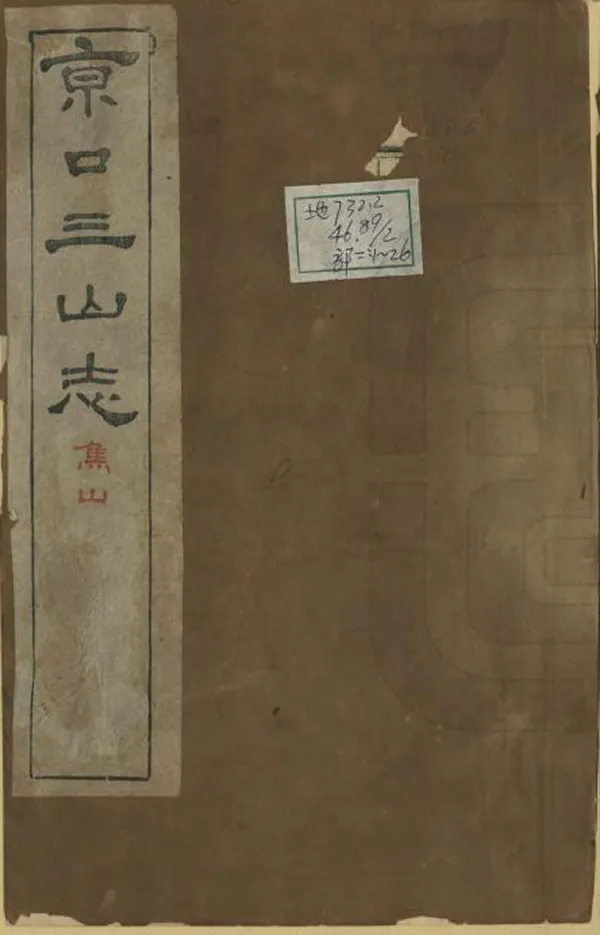 京口三山志
焦山
地732.2
46.89/2
部二
26